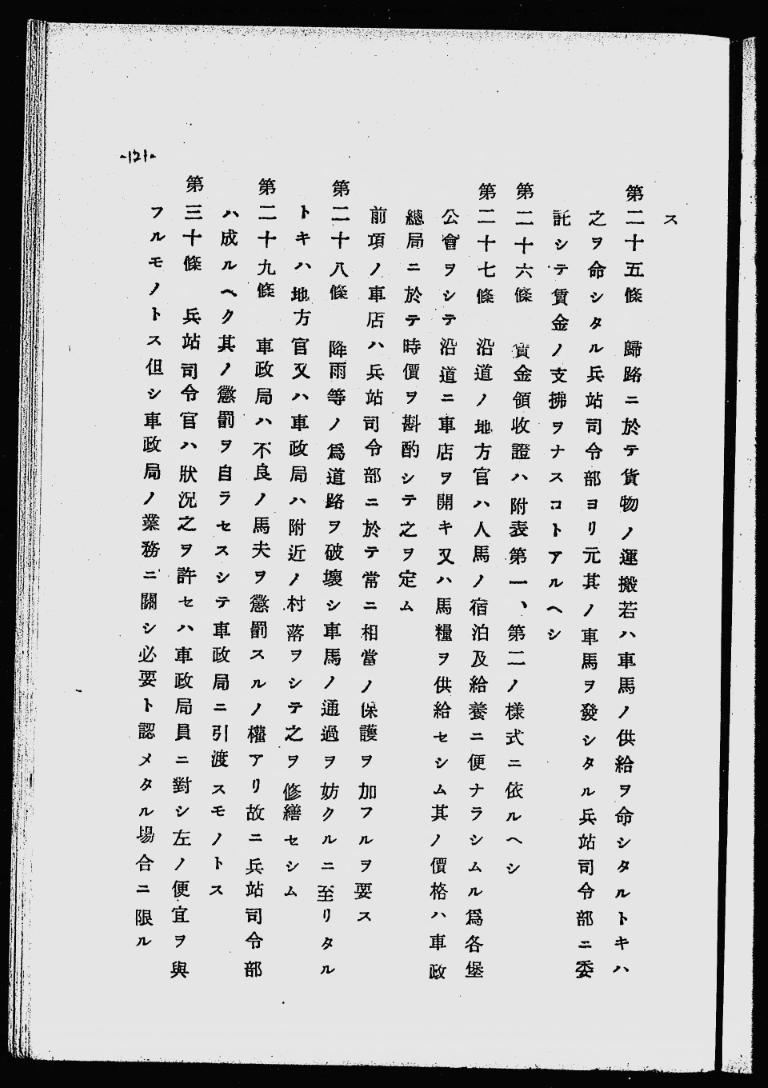 ス
第二十五條　歸路ニ於テ貨物ノ運搬若ハ車馬ノ供給ヲ命シタルトキハ
之ヲ命シタル兵站司令部ヨリ元其ノ車馬ヲ發シタル兵站司令部ニ委
託シテ賃金ノ支拂ヲナスコトアルヘシ
第二十六條　賃金領收證ハ附表第一、第二ノ樣式ニ依ルヘシ
第二十七條　沿道ノ地方官ハ人馬ノ宿泊及給養ニ便ナラシムル爲各堡
公會ヲシテ沿道ニ車店ヲ開キ又ハ馬糧ヲ供給セシム其ノ價格ハ車政
總局ニ於テ時價ヲ斟酌シテ之ヲ定ム
前項ノ車店ハ兵站司令部ニ於テ常ニ相當ノ保護ヲ加フルヲ要ス
第二十八條　降雨等ノ爲道路ヲ破壞シ車馬ノ通過ヲ妨クルニ至リタル
トキハ地方官又ハ車政局ハ附近ノ村落ヲシテ之ヲ修繕セシム
第二十九條　車政局ハ不良ノ馬夫ヲ懲罰スルノ權アリ故ニ兵站司令部
ハ成ルヘク其ノ懲罰ヲ自ラセスシテ車政局ニ引渡スモノトス
第三十條　兵站司令官ハ狀況之ヲ許セハ車政局員ニ對シ左ノ便宜ヲ與
フルモノトス但シ車政局ノ業務ニ關シ必要ト認メタル場合ニ限ル
-121-